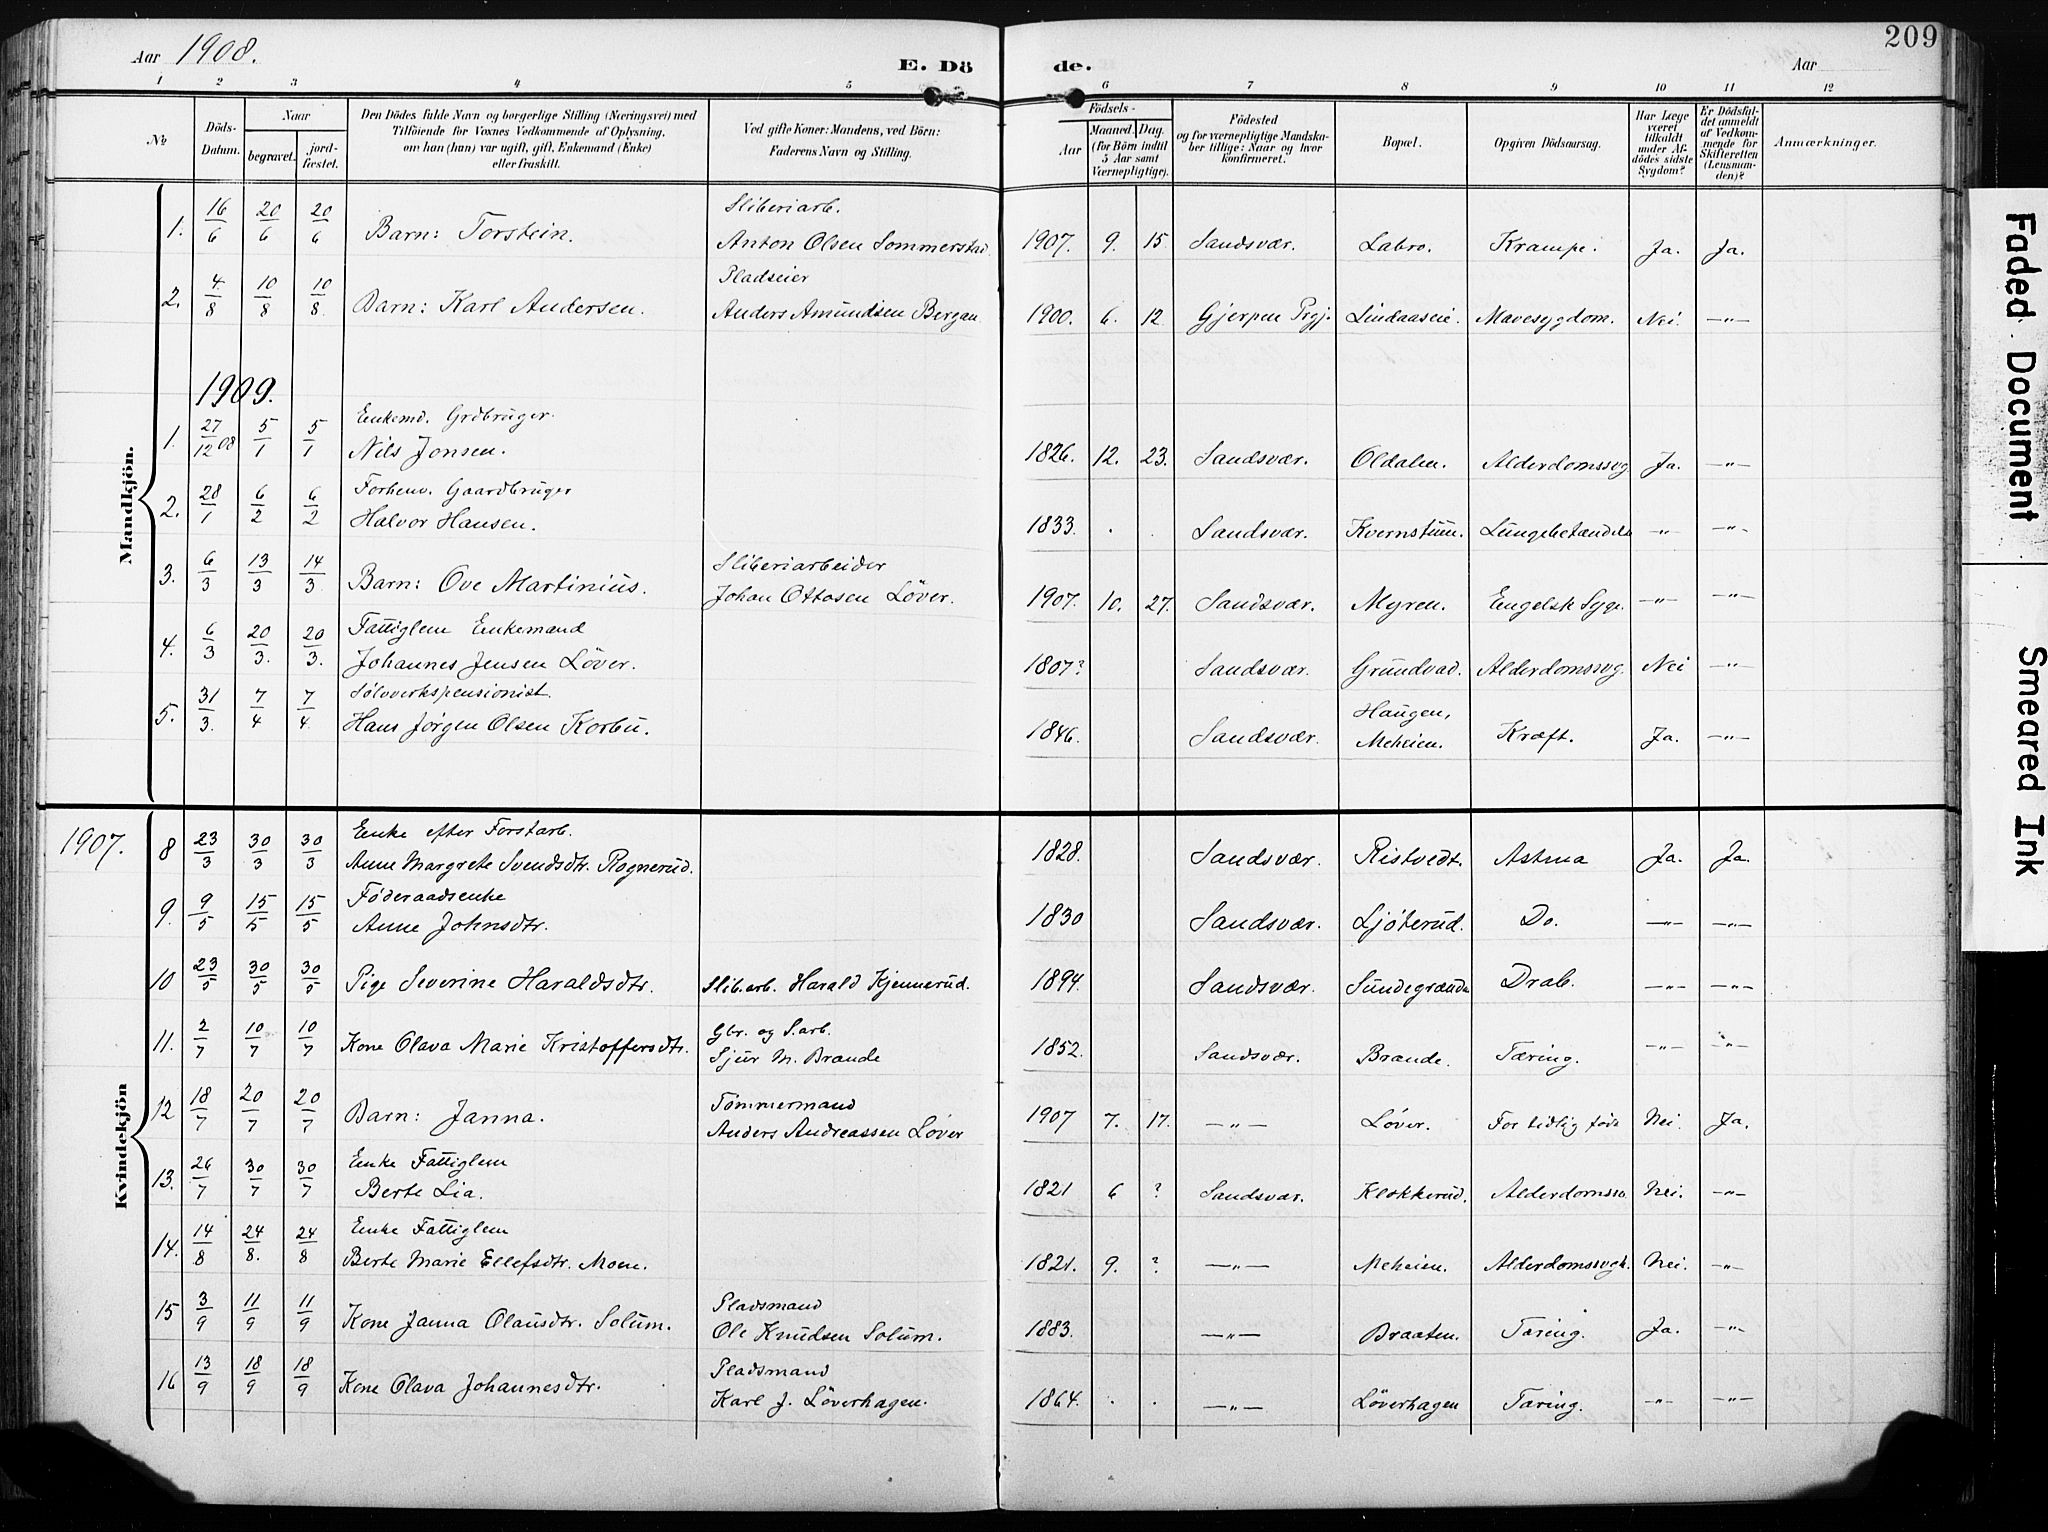 209
Aar 1908.
E. Dö de.
Aar
1 2 3 4 5 6 7 8 9 10 11 12
№
Döds-Datum.
Naar
begravet.
jordfæstet.
Den Dödes fulde Navn og borgerlige Stilling (Næringsvei) med
Tilföiende for Voxnes Vedkommende af Oplysning,
om han (hun) var ugift, gift, Enkemand (Enke)
eller fraskilt.
Ved gifte Koner: Mandens, ved Börn:
Faderens Navn og Stilling.
Födsels-
Aar
Maaned. Dag.
(for Börn indtil
5 Aar samt
Værnepligtige).
Födested
og for værnepligtige Mandska-
ber tillige: Naar og hvor
konfirmeret.
Bopæl.
Opgiven Dödsaarsag.
Har Læge
været
tilkaldt
under Af-
dödes sidste
Sygdom?
Er Dödsfal-
det anmeldt
af Vedkom-
mende for
Skifteretten
(Lensman-
den)?
Anmærkninger.
Mandkjön.
Sliberiarb.
1. 16/6 20/6 20/6 Barn: Torstein. Anton Olsen Sommerstad 1907. 9. 15. Sandsvær. Labro. Krampe. Ja. Ja.
Pladseier
2. 4/8 10/8 10/8 Barn: Karl Andersen. Anders Amundsen Bergan 1900. 6. 12. Gjerpen Prgj. Lindaaseie. Mavesygdom. Nei. —"—
1909.
Enkemd. Grdbruger.
1. 27/12 08 5/1 5/1 Nils Jonsen. 1826. 12. 23. Sandsvær. Oldalen. Alderdomssvg Ja. —"—
Forhenv. Gaardbruger
2. 28/1 6/2 6/2 Halvor Hansen. 1833. . . Sandsvær. Kvernstuen. Lungebetændels —"— —"—
Sliberiarbeider
3. 6/3 13/3 14/3 Barn: Ove Martinius. Johan Ottosen Løver. 1907. 10. 27. Sandsvær. Myren. Engelsk Syge. —"— —"—
Fattiglem Enkemand
4. 6/3 20/3. 20/3. Johannes Jensen Løver. 1807? Sandsvær. Grundvad. Alderdomssvg. Nei —"—
Sølvverkspensionist.
5. 31/3. 7/4 7/4. Hans Jørgen Olsen Korbu. 1846. Sandsvær. Haugen, Meheien. Kræft. Ja. —"—
Kvindekjön
1907.
Enke efter Forstarb.
8 23/3 30/3 30/3 Anne Margrete Svendsdtr. Rognerud. 1828. Sandsvær. Ristvedt. Astma Ja. Ja.
Føderaadsenke
9. 9/5 15/5 15/5 Anne Johnsdtr. 1830 Sandsvær. Ljøterud. Do. —"— —"—
10 23/5 30/5 30/5 Pige Severine Haraldsdtr. Slib.arb. Harald Kjennerud. 1894. Sandsvær. Drab. —"— —"—
Gbr. og S.arb.
11. 2/7 10/7 10/7 Kone Olava Marie Kristoffersdtr. Sjur M. Brande 1852. Sandsvær. Brande. Tæring. —"— —"—
Tømmermand
12 18/7 20/7 20/7 Barn: Janna. Anders Andreassen Løver 1907 7. 17. —"— Løver. For tidlig føds Nei. Ja.
Enke Fattiglem
13. 26/7 30/7 30/7 Berte Lia. 1821 6 ? Sandsvær. Klokkerud. Alderdomssv. Nei. —"—
Enke Fattiglem
14. 14/8 24/8. 24/8 Berte Marie Ellefsdtr. Moen. 1821. 9. ? —"— Meheien. Alderdomssvgh. Nei. —"—
Pladsmand
15 3/9 11/9 11/9 Kone Janna Olausdtr. Solum. Ole Knudsen Solum. 1883. —"— Braaten. Tæring. Ja. —"—
Pladsmand
16 13/9 18/9 18/9 Kone Olava Johannesdtr. Karl J. Løverhagen. 1864. . . —"— Løverhagen Tæring. —"— —"—
Faded Document
Smeared Ink